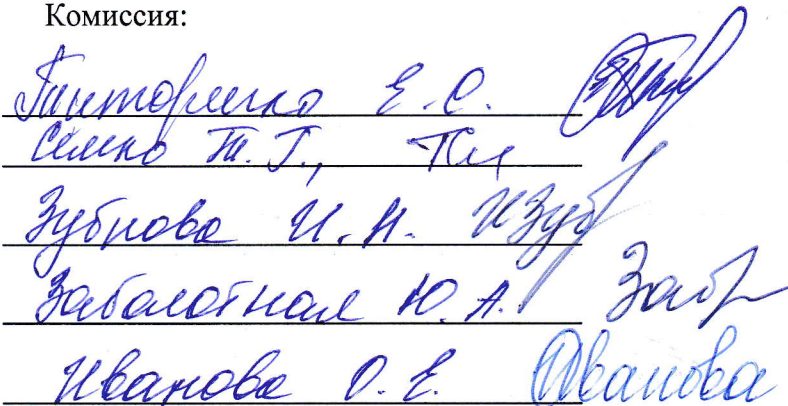 Комиссия:
Е. С.
Семко Т. Г.,
Зуброва И. Н. ИЗуб
Заболотная Ю. А.
Иванова О. Е. Иванова